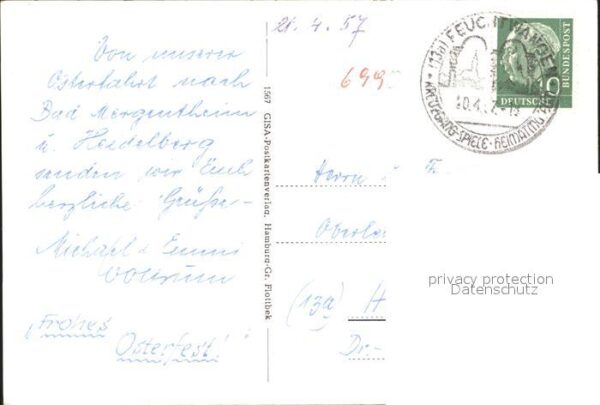 21.4.57
Von unserer
Osterfahrt nach
Bad Mergentheim
u. Heidelberg
senden wir Euch
herzliche Grüße
Michael u. Emmi
"Frohes
Osterfest!"
1567 GISA-Postkartenverlag, Hamburg-Gr. Flottbek
699
(13a) FEUCHTWANGEN
20.4.57-15
KREUZGANG-SPIELE · HEIMATMUSEUM
10
DEUTSCHE
BUNDESPOST
Herrn u. F
Oberle
(13a) H
Dr.-
privacy protection
Datenschutz